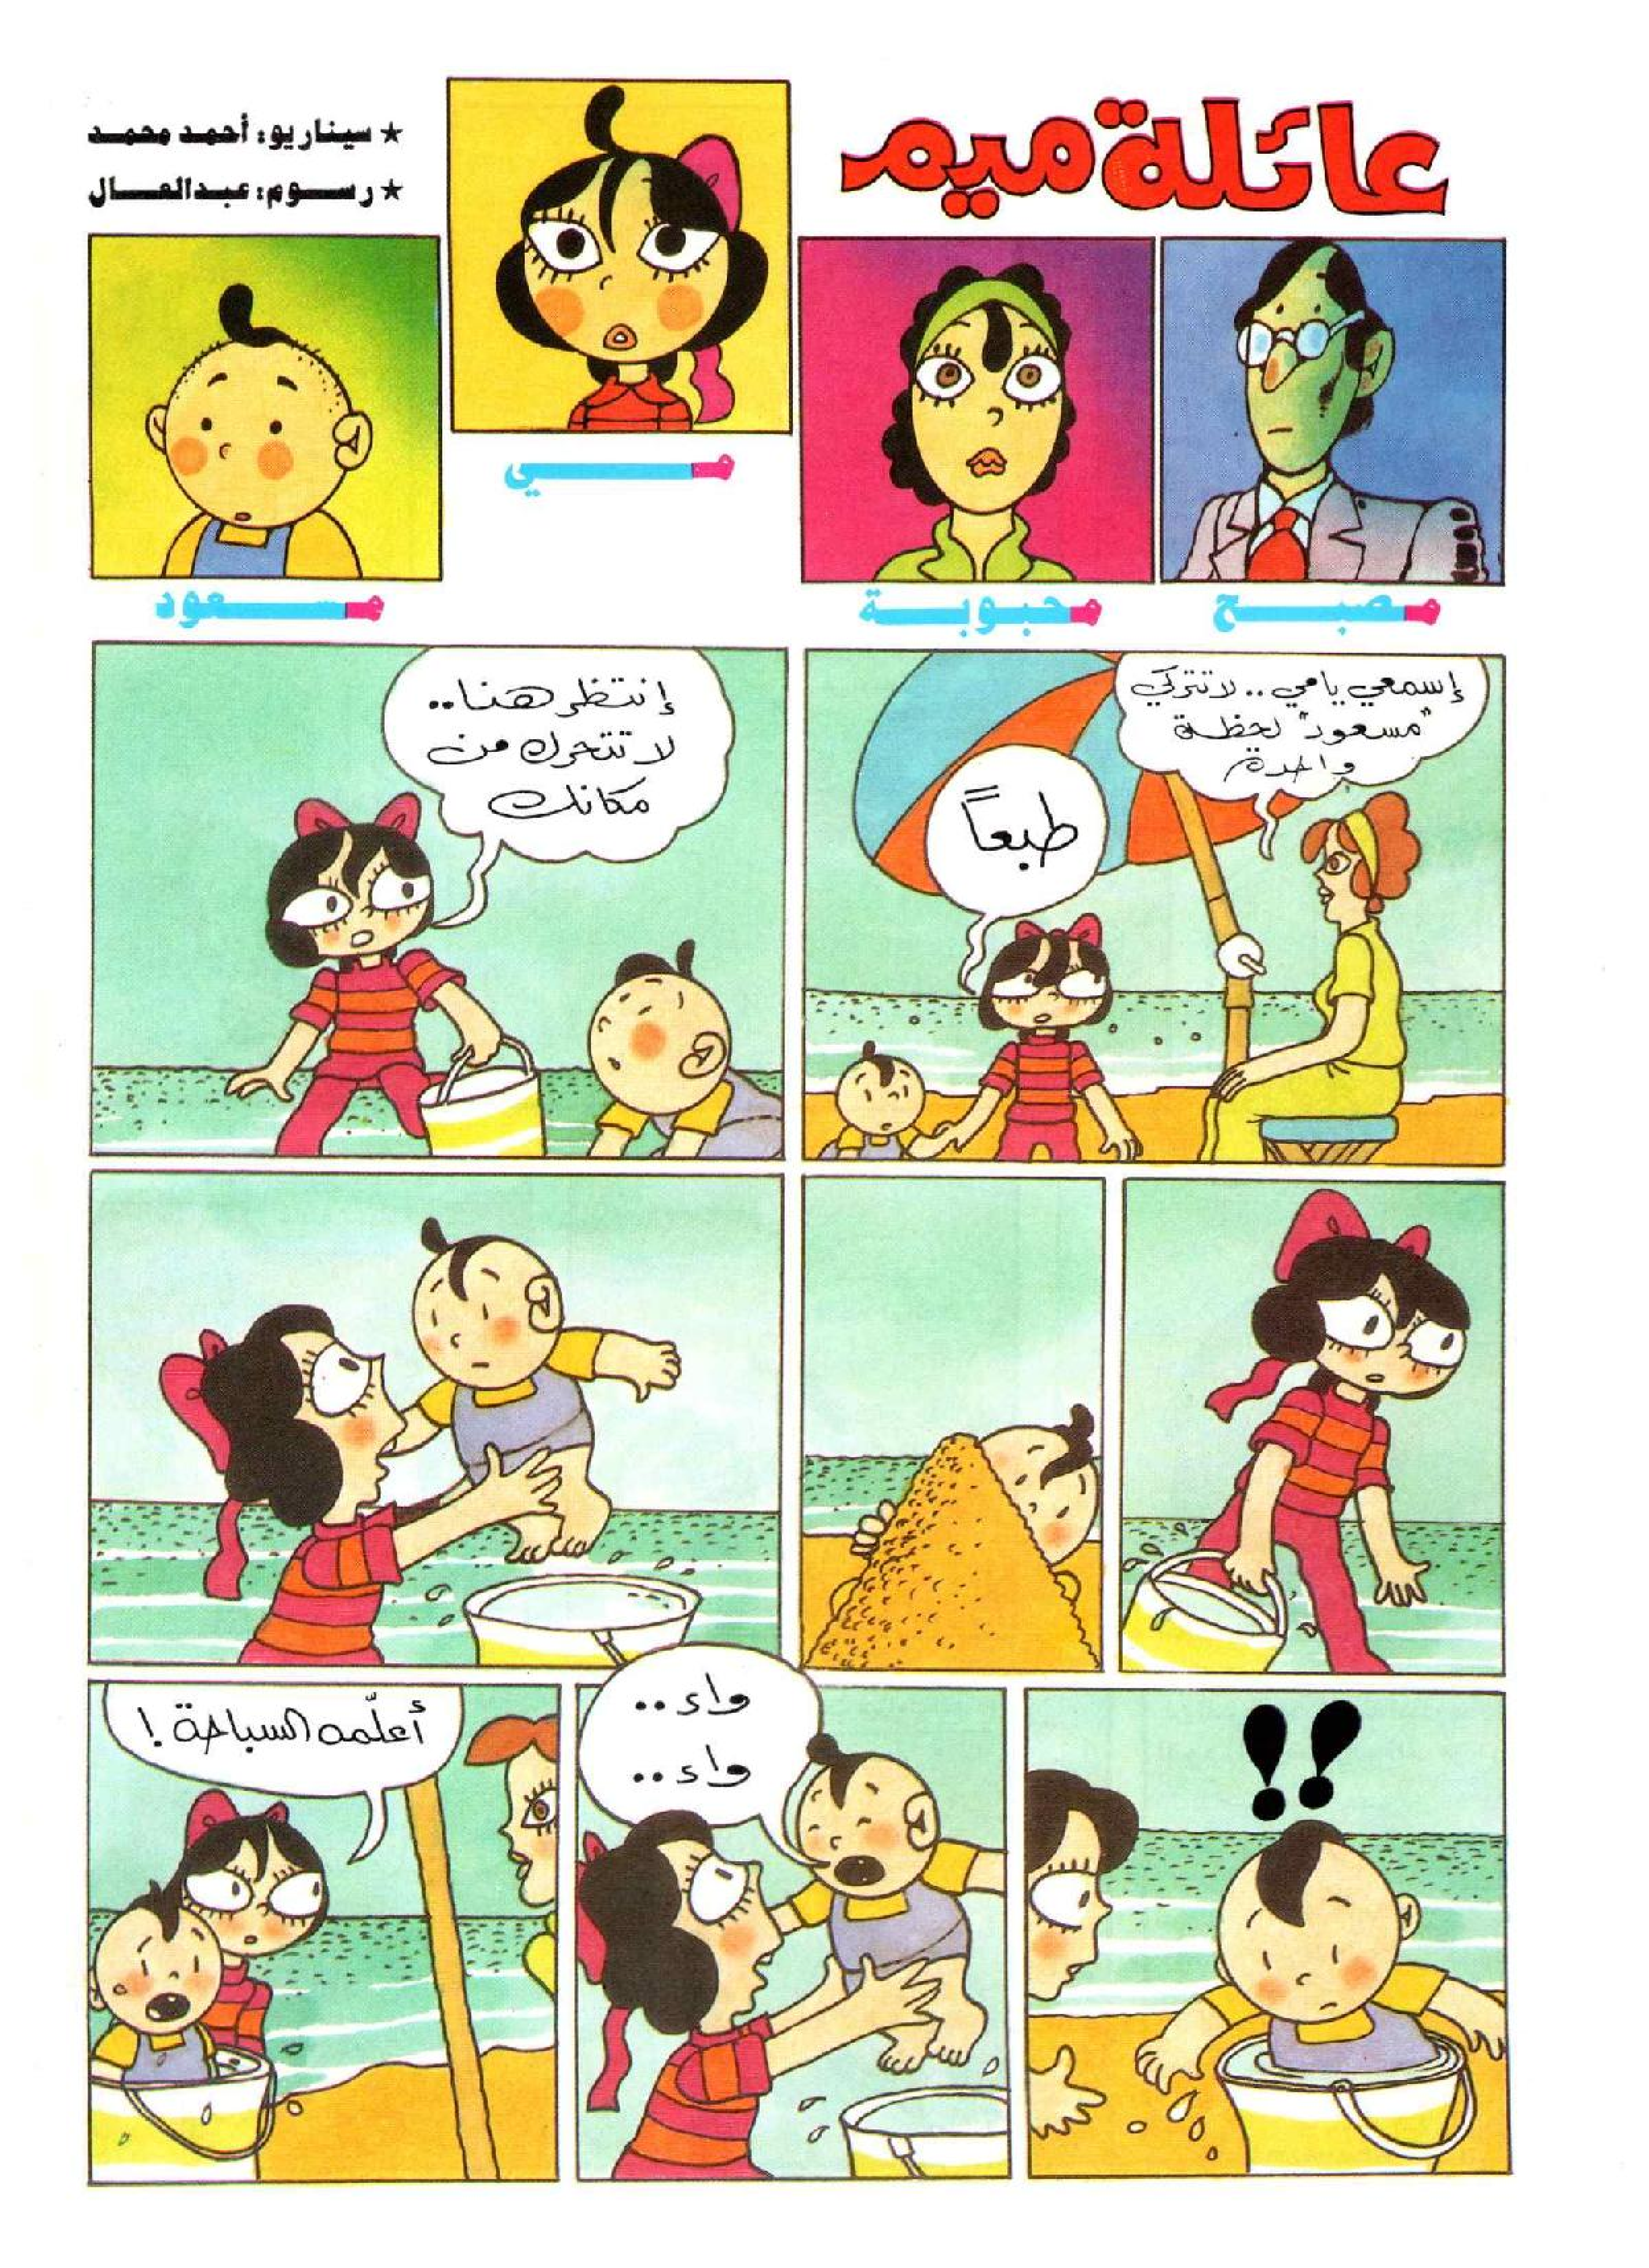 عائلة ميم
★ سيناريو: أحمد محمد
★ رسوم: عبدالعال
مصبح
محبوبة
مي
مسعود
إسمعي يا مي.. لا تتركي
"مسعود" لحظة
واحدة
طبعاً
إنتظر هنا..
لا تتحرك من
مكانك
!!
واء..
واء..
أعلّمه السباحة!